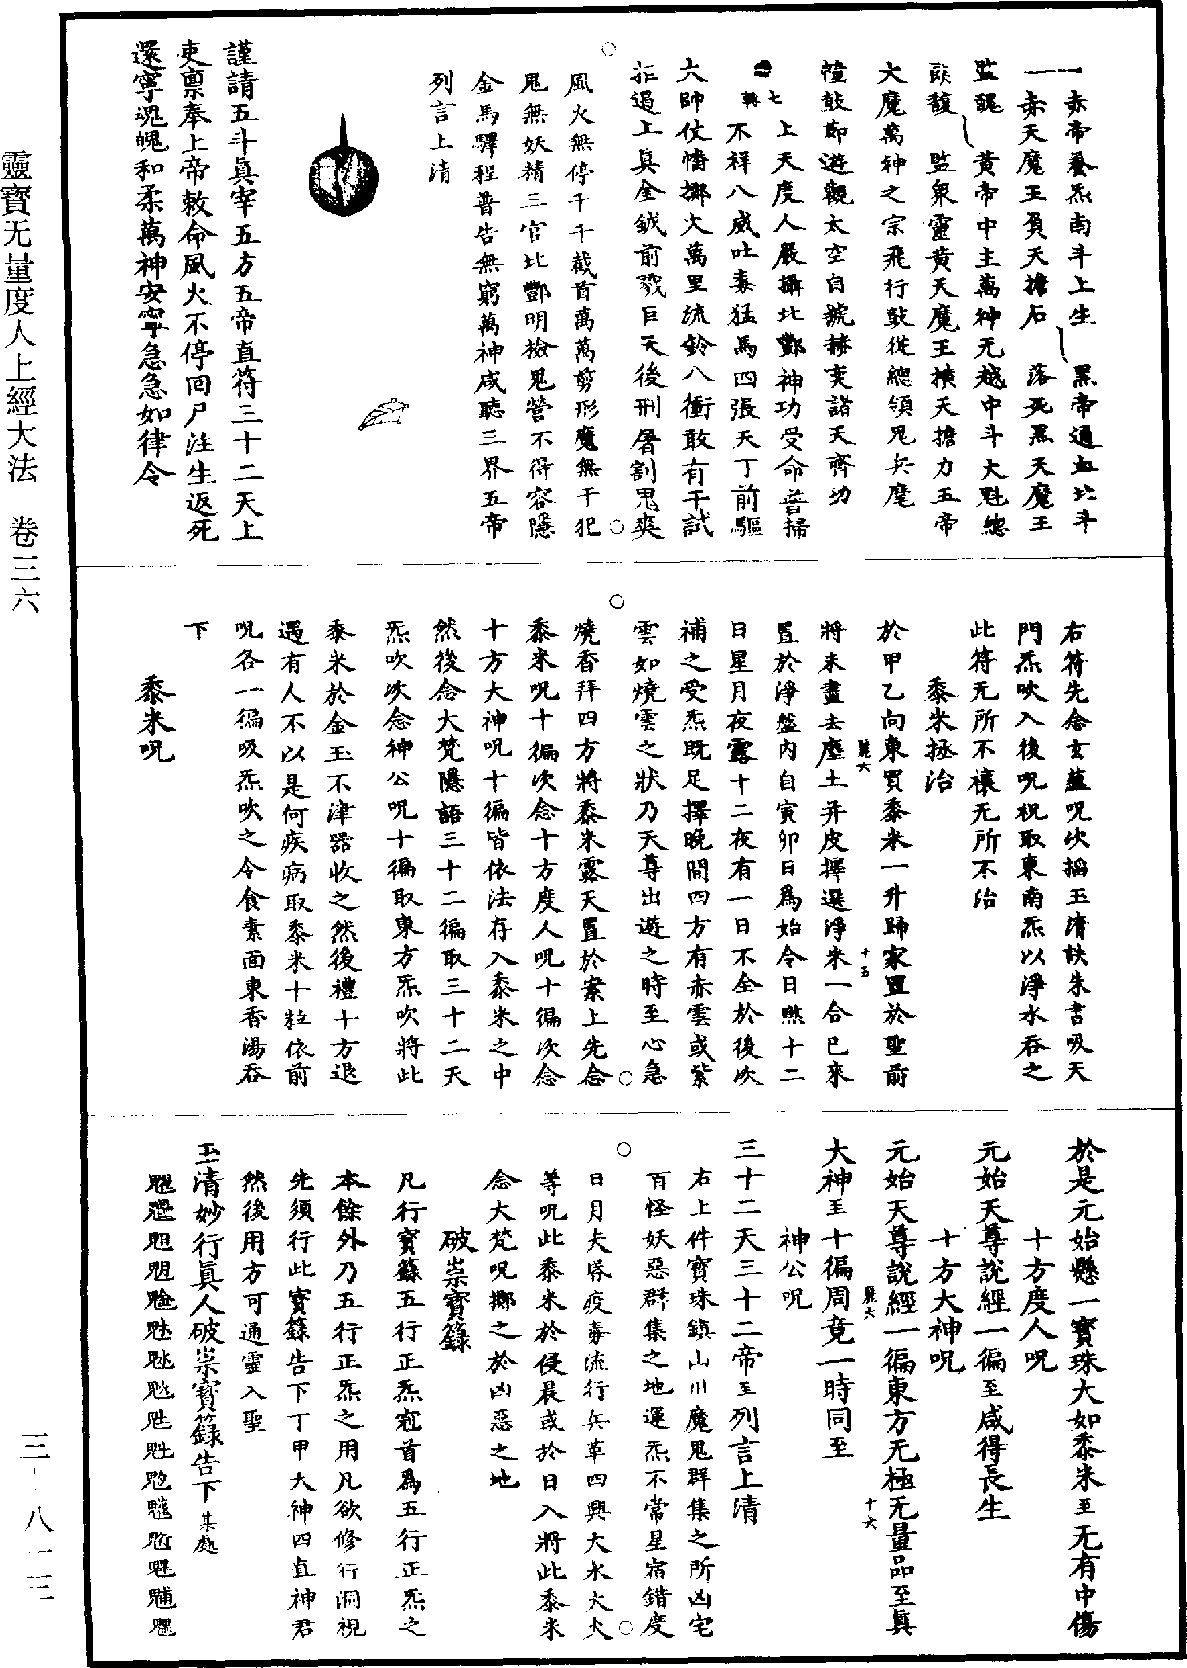 赤帝養炁南斗上生 黑帝通血北斗
赤天魔王負天擔石 落死黑天魔王
監醜 黃帝中主萬神无越中斗大魁總
監衆靈黃天魔王橫天擔力五帝
大魔萬神之宗飛行鼓從總領鬼兵麾
幢鼓節遊觀太空自號赫奕諸天齊功
上天度人嚴攝北酆神功受命普掃
不祥八威吐毒猛馬四張天丁前驅
大帥仗幡擲火萬里流鈴八衝敢有干試
拒遏上真金鉞前戮巨天後刑屠割鬼爽
風火無停千千截首萬萬剪形魔無干犯
鬼無妖精三官北酆明檢鬼營不得容隱
金馬驛程普告無窮萬神咸聽三界五帝
列言上清
謹請五斗眞宰五方五帝直符三十二天上
吏禀奉上帝敕命風火不停回尸注生返死
還寧魂魄和柔萬神安寧急急如律令
右符先念玄蘊呪次掐玉清訣朱書吸天
門炁吹入後呪祝取東南炁以淨水吞之
此符无所不禳无所不治
黍米拯治
於甲乙向東買黍米一升歸家置於聖前
將末盡去塵土并皮擇選淨米一合已來
置於淨盤內自寅卯日爲始令日照十二
日星月夜露十二夜有一日不全於後次
補之受炁既足擇晚間四方有赤雲或紫
雲如燒雲之狀乃天尊出遊之時至心急
燒香拜四方將黍米露天置於案上先念
黍米呪十徧次念十方度人呪十徧次念
十方大神呪十徧皆依法存入黍米之中
然後念大梵隱語三十二徧取三十二天
炁吹次念神公呪十徧取東方炁吹將此
黍米於金玉不津器收之然後禮十方退
遇有人不以是何疾病取黍米十粒依前
呪各一徧吸炁吹之令食素面東香湯吞
下
黍米呪
於是元始懸一寶珠大如黍米至无有中傷
十方度人呪
元始天尊說經一徧至咸得長生
十方大神呪
元始天尊說經一徧東方无極无量品至眞
大神至十徧周竟一時同至
神公呪
三十二天三十二帝至列言上清
右上件寶珠鎮山川魔鬼群集之所凶宅
百怪妖惡群集之地運炁不常星宿錯度
日月失昏疫毒流行兵革四興大水大火
等呪此黍米於侵晨或於日入將此黍米
念大梵呪擲之於凶惡之地
破祟寶籙
凡行寶籙五行正炁冠首爲五行正炁之
本餘外乃五行正炁之用凡欲修行洞視
先須行此寶籙告下丁甲大神四直神君
然後用方可通靈入聖
玉清妙行眞人破祟寶籙告下某處
靈寶无量度人上經大法 卷三六
三–八一三